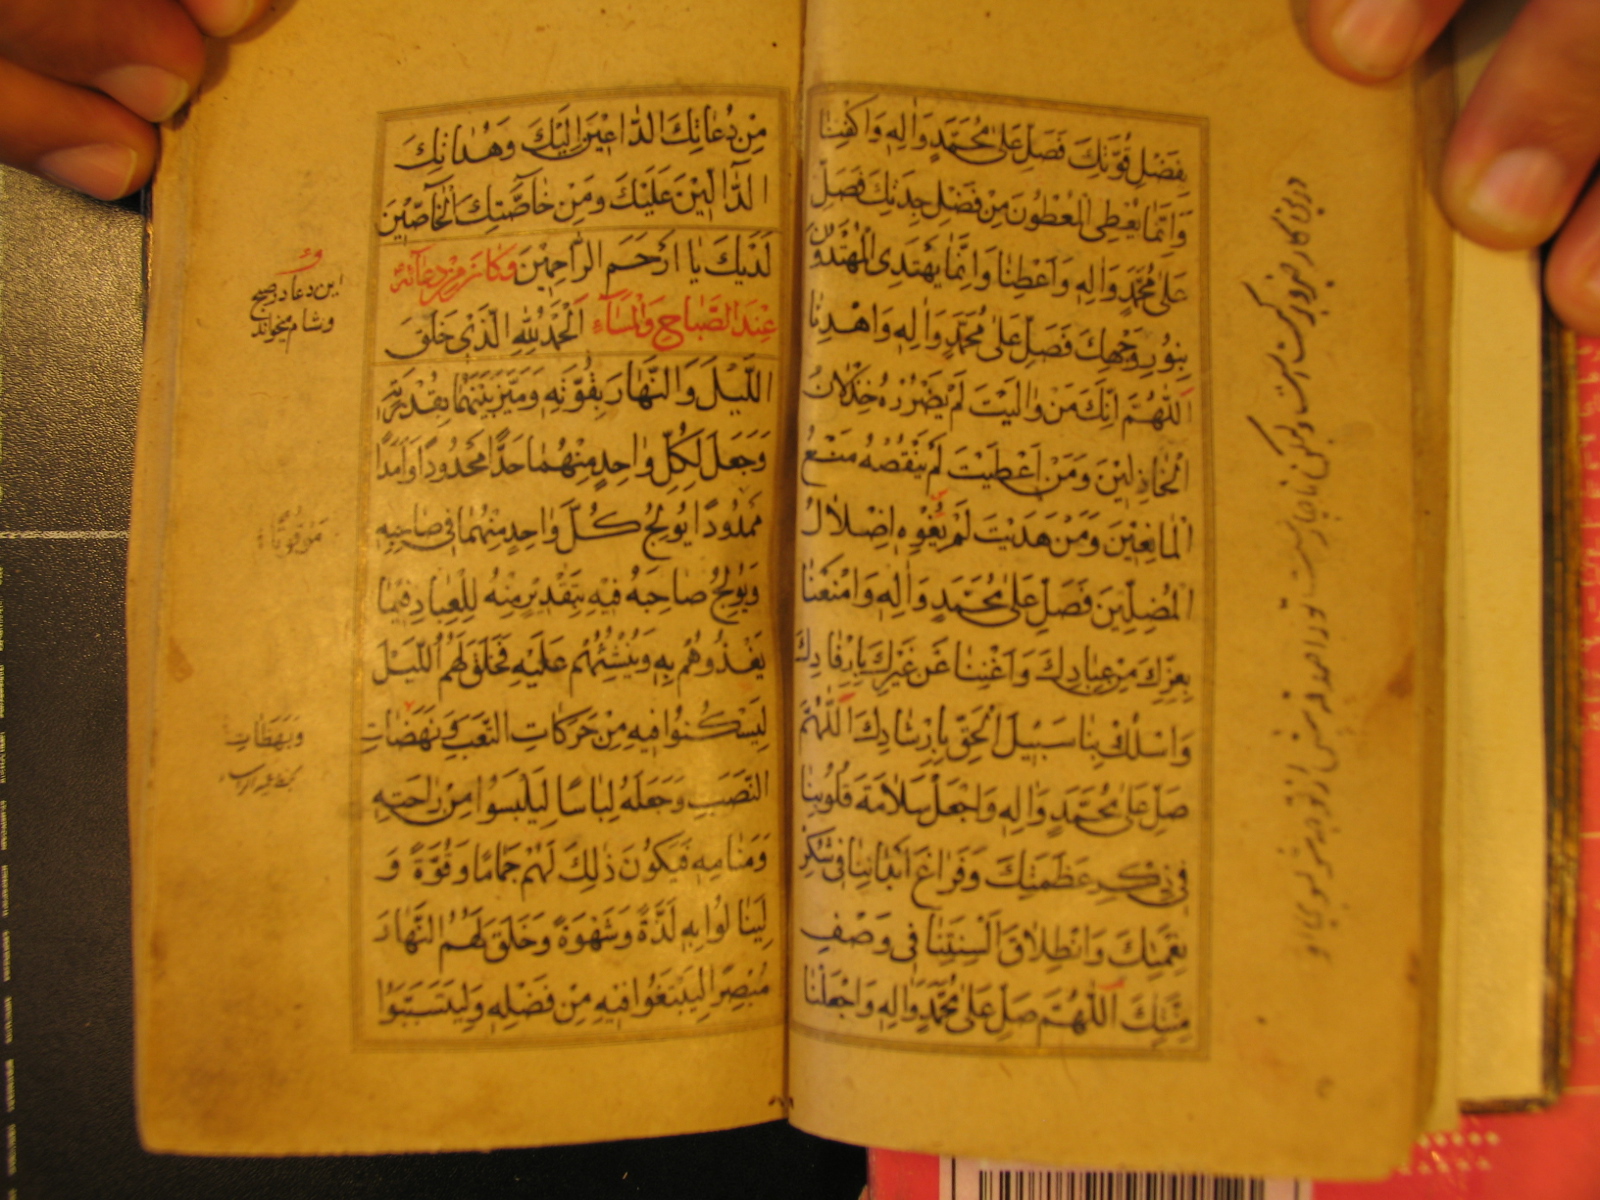 بِفَضْلِ قُوَّتِكَ فَصَلِّ عَلىٰ مُحَمَّدٍ وَاٰلِهِ وَاكْفِنٰا
وَاِنَّمٰا يُعْطِى الْمُعْطُونَ مِنْ فَضْلِ جِدَتِكَ فَصَلِّ
عَلىٰ مُحَمَّدٍ وَاٰلِهِ وَاَعْطِنٰا وَاِنَّمٰا يَهْتَدِى الْمُهْتَدُونَ
بِنُورِ وَجْهِكَ فَصَلِّ عَلىٰ مُحَمَّدٍ وَاٰلِهِ وَاهْدِنٰا
اَللّٰهُمَّ اِنَّكَ مَنْ وٰالَيْتَ لَمْ يَضْرُرْهُ خِذْلاٰنُ
الْخٰاذِلِينَ وَمَنْ اَعْطَيْتَ لَمْ يَنْقُصْهُ مَنْعُ
الْمٰانِعِينَ وَمَنْ هَدَيْتَ لَمْ يُغْوِهِ اِضْلاٰلُ
الْمُضِلِّينَ فَصَلِّ عَلىٰ مُحَمَّدٍ وَاٰلِهِ وَامْنَعْنٰا
بِعِزِّكَ مِنْ عِبٰادِكَ وَاَغْنِنٰا عَنْ غَيْرِكَ بِاِرْفٰادِكَ
وَاسْلُكْ بِنٰا سَبِيلَ الْحَقِّ بِاِرْشٰادِكَ اَللّٰهُمَّ
صَلِّ عَلىٰ مُحَمَّدٍ وَاٰلِهِ وَاجْعَلْ سَلاٰمَةَ قُلُوبِنٰا
فِى ذِكْرِ عَظَمَتِكَ وَفَرٰاغَ اَبْدٰانِنٰا فِى شُكْرِ
نِعْمَتِكَ وَانْطِلاٰقَ اَلْسِنَتِنٰا فِى وَصْفِ
مِنَّتِكَ اَللّٰهُمَّ صَلِّ عَلىٰ مُحَمَّدٍ وَاٰلِهِ وَاجْعَلْنٰا
مِنْ دُعٰاتِكَ الدّٰاعِينَ اِلَيْكَ وَهُدٰاتِكَ
الدّٰالِّينَ عَلَيْكَ وَمِنْ خٰاصَّتِكَ الْخٰاصِّينَ
لَدَيْكَ يٰا اَرْحَمَ الرّٰاحِمِينَ وَكٰانَ مِنْ دُعٰآئِهِ
عِنْدَ الصَّبٰاحِ وَالْمَسٰآءِ اَلْحَمْدُ لِلّٰهِ الَّذِى خَلَقَ
اللَّيْلَ وَالنَّهٰارَ بِقُوَّتِهِ وَمَيَّزَ بَيْنَهُمٰا بِقُدْرَتِهِ
وَجَعَلَ لِكُلِّ وٰاحِدٍ مِنْهُمٰا حَدًّا مَحْدُودًا وَاَمَدًا
مَمْدُودًا يُولِجُ كُلَّ وٰاحِدٍ مِنْهُمٰا فِى صٰاحِبِهِ
وَيُولِجُ صٰاحِبَهُ فِيهِ بِتَقْدِيرٍ مِنْهُ لِلْعِبٰادِ فِيمٰا
يَغْذُوهُمْ بِهِ وَيُنْشِئُهُمْ عَلَيْهِ فَخَلَقَ لَهُمُ اللَّيْلَ
لِيَسْكُنُوا فِيهِ مِنْ حَرَكٰاتِ التَّعَبِ وَنَهَضٰاتِ
النَّصَبِ وَجَعَلَهُ لِبٰاسًا لِيَلْبَسُوا مِنْ رٰاحَتِهِ
وَمَنٰامِهِ فَيَكُونَ ذٰلِكَ لَهُمْ جَمٰامًا وَقُوَّةً وَ
لِيَنٰالُوا بِهِ لَذَّةً وَشَهْوَةً وَخَلَقَ لَهُمُ النَّهٰارَ
مُبْصِرًا لِيَبْتَغُوا فِيهِ مِنْ فَضْلِهِ وَلِيَتَسَبَّبُوا
اين دعا در صبح
و شام ميخواند
مَوْقُوتًا
وَبَهَظٰاتِ